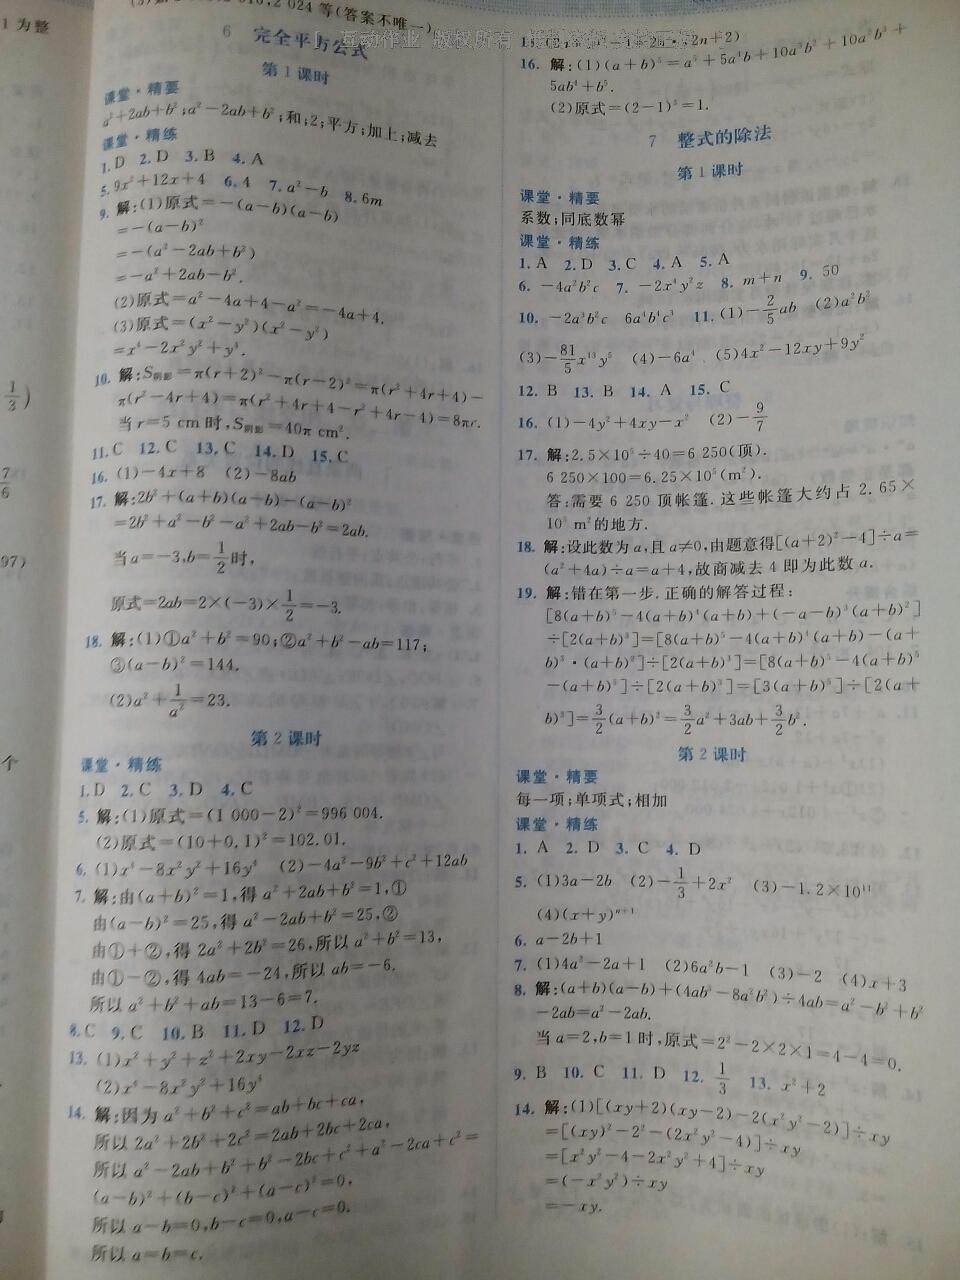 1 为整
2 024 等(答案不唯一)
6 完全平方公式
第 1 课时
课堂·精要
a²+2ab+b²;a²-2ab+b²;和;2;平方;加上;减去
课堂·精练
1.D 2.D 3.B 4.A
5.9x²+12x+4 6.4 7.a²-b 8.6m
9.解:(1)原式=-(a-b)(a-b)
=-(a-b)²
=-(a²-2ab+b²)
=-a²+2ab-b².
(2)原式=a²-4a+4-a²=-4a+4.
(3)原式=(x²-y²)(x²-y²)
=x⁴-2x²y²+y⁴.
10.解:S阴影=π(r+2)²-π(r-2)²=π(r²+4r+4)-
π(r²-4r+4)=π(r²+4r+4-r²+4r-4)=8πr.
当 r=5 cm 时,S阴影=40π cm².
11.C 12.C 13.C 14.D 15.C
16.(1)-4x+8 (2)-8ab
17.解:2b²+(a+b)(a-b)-(a-b)²
=2b²+a²-b²-a²+2ab-b²=2ab.
当 a=-3,b=1/2时,
原式=2ab=2×(-3)×1/2=-3.
18.解:(1)①a²+b²=90;②a²+b²-ab=117;
③(a-b)²=144.
(2)a²+1/a²=23.
第 2 课时
课堂·精练
1.D 2.C 3.D 4.C
5.解:(1)原式=(1 000-2)²=996 004.
(2)原式=(10+0.1)²=102.01.
6.(1)x⁴-8x²y²+16y⁴ (2)-4a²-9b²+c²+12ab
7.解:由(a+b)²=1,得 a²+2ab+b²=1,①
由(a-b)²=25,得 a²-2ab+b²=25,②
由①+②,得 2a²+2b²=26,所以 a²+b²=13,
由①-②,得 4ab=-24,所以 ab=-6.
所以 a²+b²+ab=13-6=7.
8.C 9.C 10.B 11.D 12.D
13.(1)x²+y²+z²+2xy-2xz-2yz
(2)x⁴-8x²y²+16y⁴
14.解:因为 a²+b²+c²=ab+bc+ca,
所以 2a²+2b²+2c²=2ab+2bc+2ca,
所以 a²-2ab+b²+b²-2bc+c²+a²-2ca+c²=
(a-b)²+(b-c)²+(a-c)²=0,
所以 a-b=0,b-c=0,a-c=0.
所以 a=b=c.
互动作业 版权所有
16.解:(1)(a+b)⁵=a⁵+5a⁴b+10a³b²+10a²b³+
5ab⁴+b⁵.
(2)原式=(2-1)⁵=1.
7 整式的除法
第 1 课时
课堂·精要
系数;同底数幂
课堂·精练
1.A 2.D 3.C 4.A 5.A
6.-4a²b²c 7.-2x⁴y²z 8.m+n 9.50
10.-2a³b²c 6a⁴b⁴c³ 11.(1)-2/5ab (2)a²b²
(3)-81/5x¹³y⁵ (4)-6a⁴ (5)4x²-12xy+9y²
12.B 13.B 14.A 15.C
16.(1)-4y²+4xy-x² (2)-9/7
17.解:2.5×10⁵÷40=6 250(顶).
6 250×100=6.25×10⁵(m²).
答:需要 6 250 顶帐篷.这些帐篷大约占 2.65×
10⁵ m²的地方.
18.解:设此数为 a,且 a≠0,由题意得[(a+2)²-4]÷a=
(a²+4a)÷a=a+4,故商减去 4 即为此数 a.
19.解:错在第一步.正确的解答过程:
[8(a+b)⁵-4(a+b)⁴(a+b)+(-a-b)³(a+b)²]
÷[2(a+b)³]=[8(a+b)⁵-4(a+b)⁴(a+b)-(a+
b)³·(a+b)²]÷[2(a+b)³]=[8(a+b)⁵-4(a+b)⁵
-(a+b)⁵]÷[2(a+b)³]=[3(a+b)⁵]÷[2(a+
b)³]=3/2(a+b)²=3/2a²+3ab+3/2b².
第 2 课时
课堂·精要
每一项;单项式;相加
课堂·精练
1.A 2.D 3.C 4.D
5.(1)3a-2b (2)-1/3+2x² (3)-1.2×10¹¹
(4)(x+y)ⁿ⁺¹
6.a-2b+1
7.(1)4a²-2a+1 (2)6a²b-1 (3)-2 (4)x+3
8.解:(a+b)(a-b)+(4ab³-8a²b²)÷4ab=a²-b²+b²
-2ab=a²-2ab.
当 a=2,b=1 时,原式=2²-2×2×1=4-4=0.
9.B 10.C 11.D 12.1/3 13.x²+2
14.解:(1)[(xy+2)(xy-2)-2(x²y²-2)]÷xy
=[(xy)²-2²-(2x²y²-4)]÷xy
=[x²y²-4-2x²y²+4]÷xy
=(-x²y²)÷xy
=-xy.